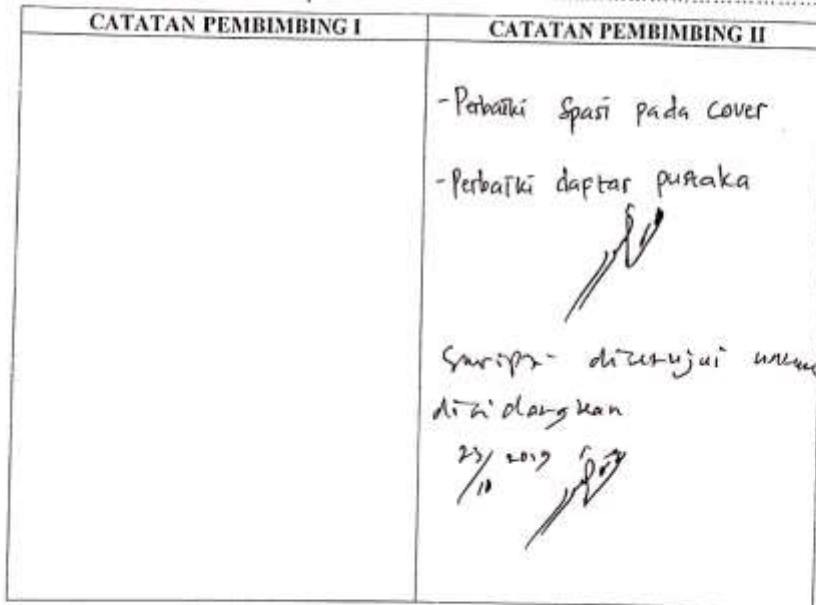 CATATAN PEMBIMBING I
CATATAN PEMBIMBING II
-Perbaiki Spasi pada Cover
-Perbaiki daftar pustaka
Skripsi disetujui untuk
disidangkan
23/10 2019